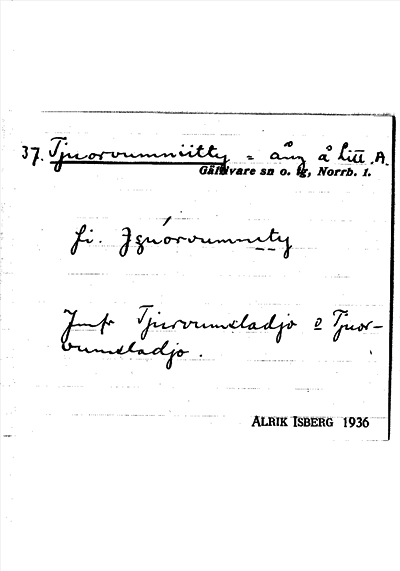 37. Tjuorvumniitty = äng å litt. A.
Gällivare sn o. tg, Norrb. l.
fi.
Jmfr Tjurvumsladjo o Tjuor-
vumsladjo.
ALRIK ISBERG 1936